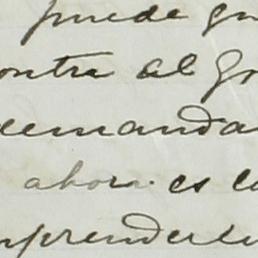 puede gu
ontra el Go
demanda
ahora es co
mprenderlo